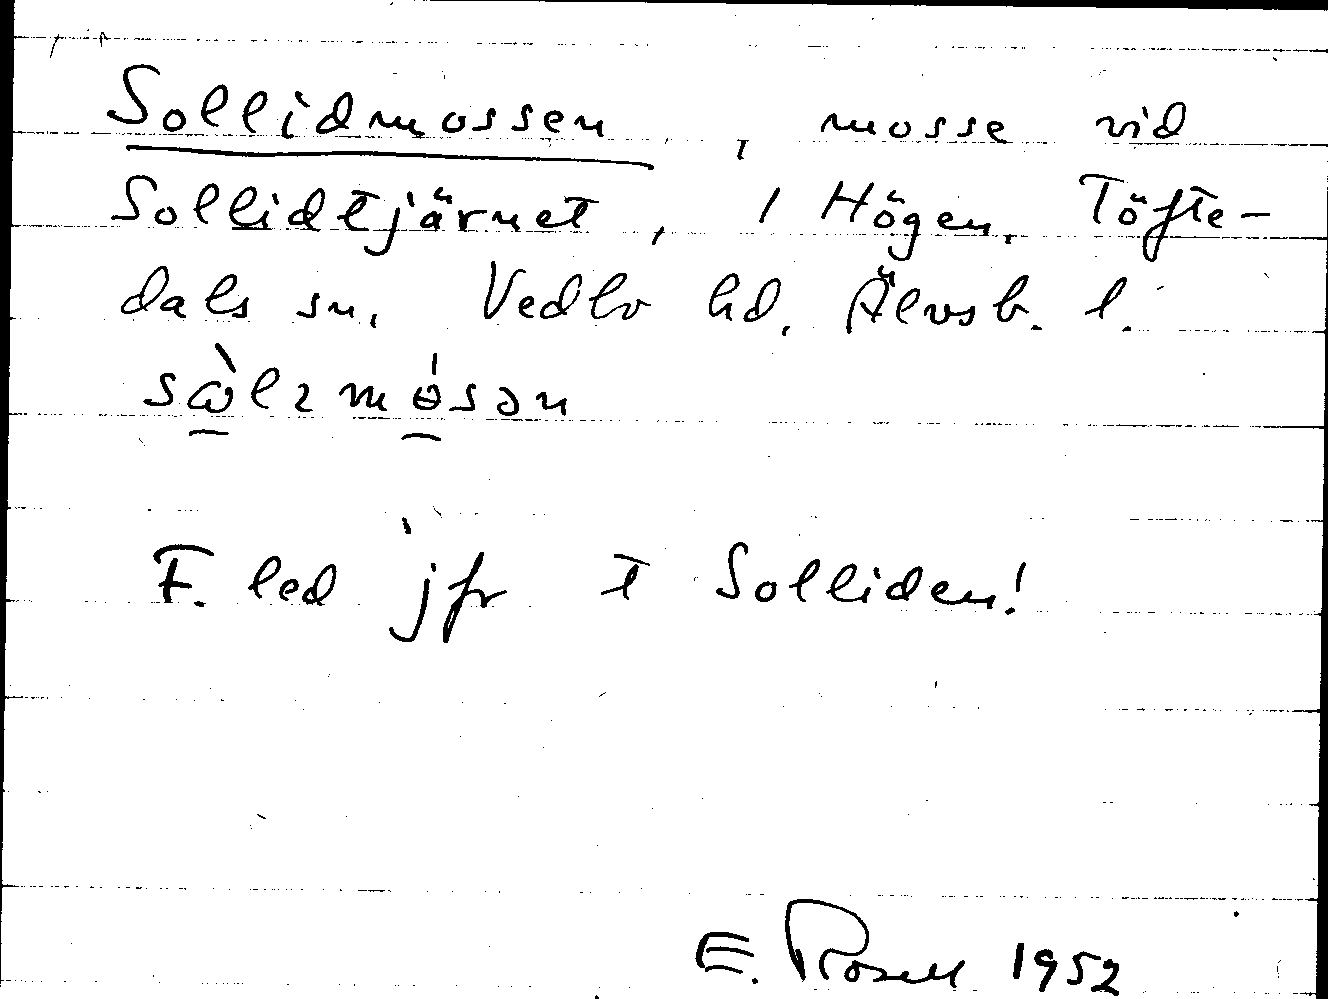 Sollidmossen, mosse vid
Sollidtjärnet, 1 Högen, Töfte-
dals sn, Vedbo hd, Älvsb. l.
F. led jfr t Solliden!
E. Rosell 1952